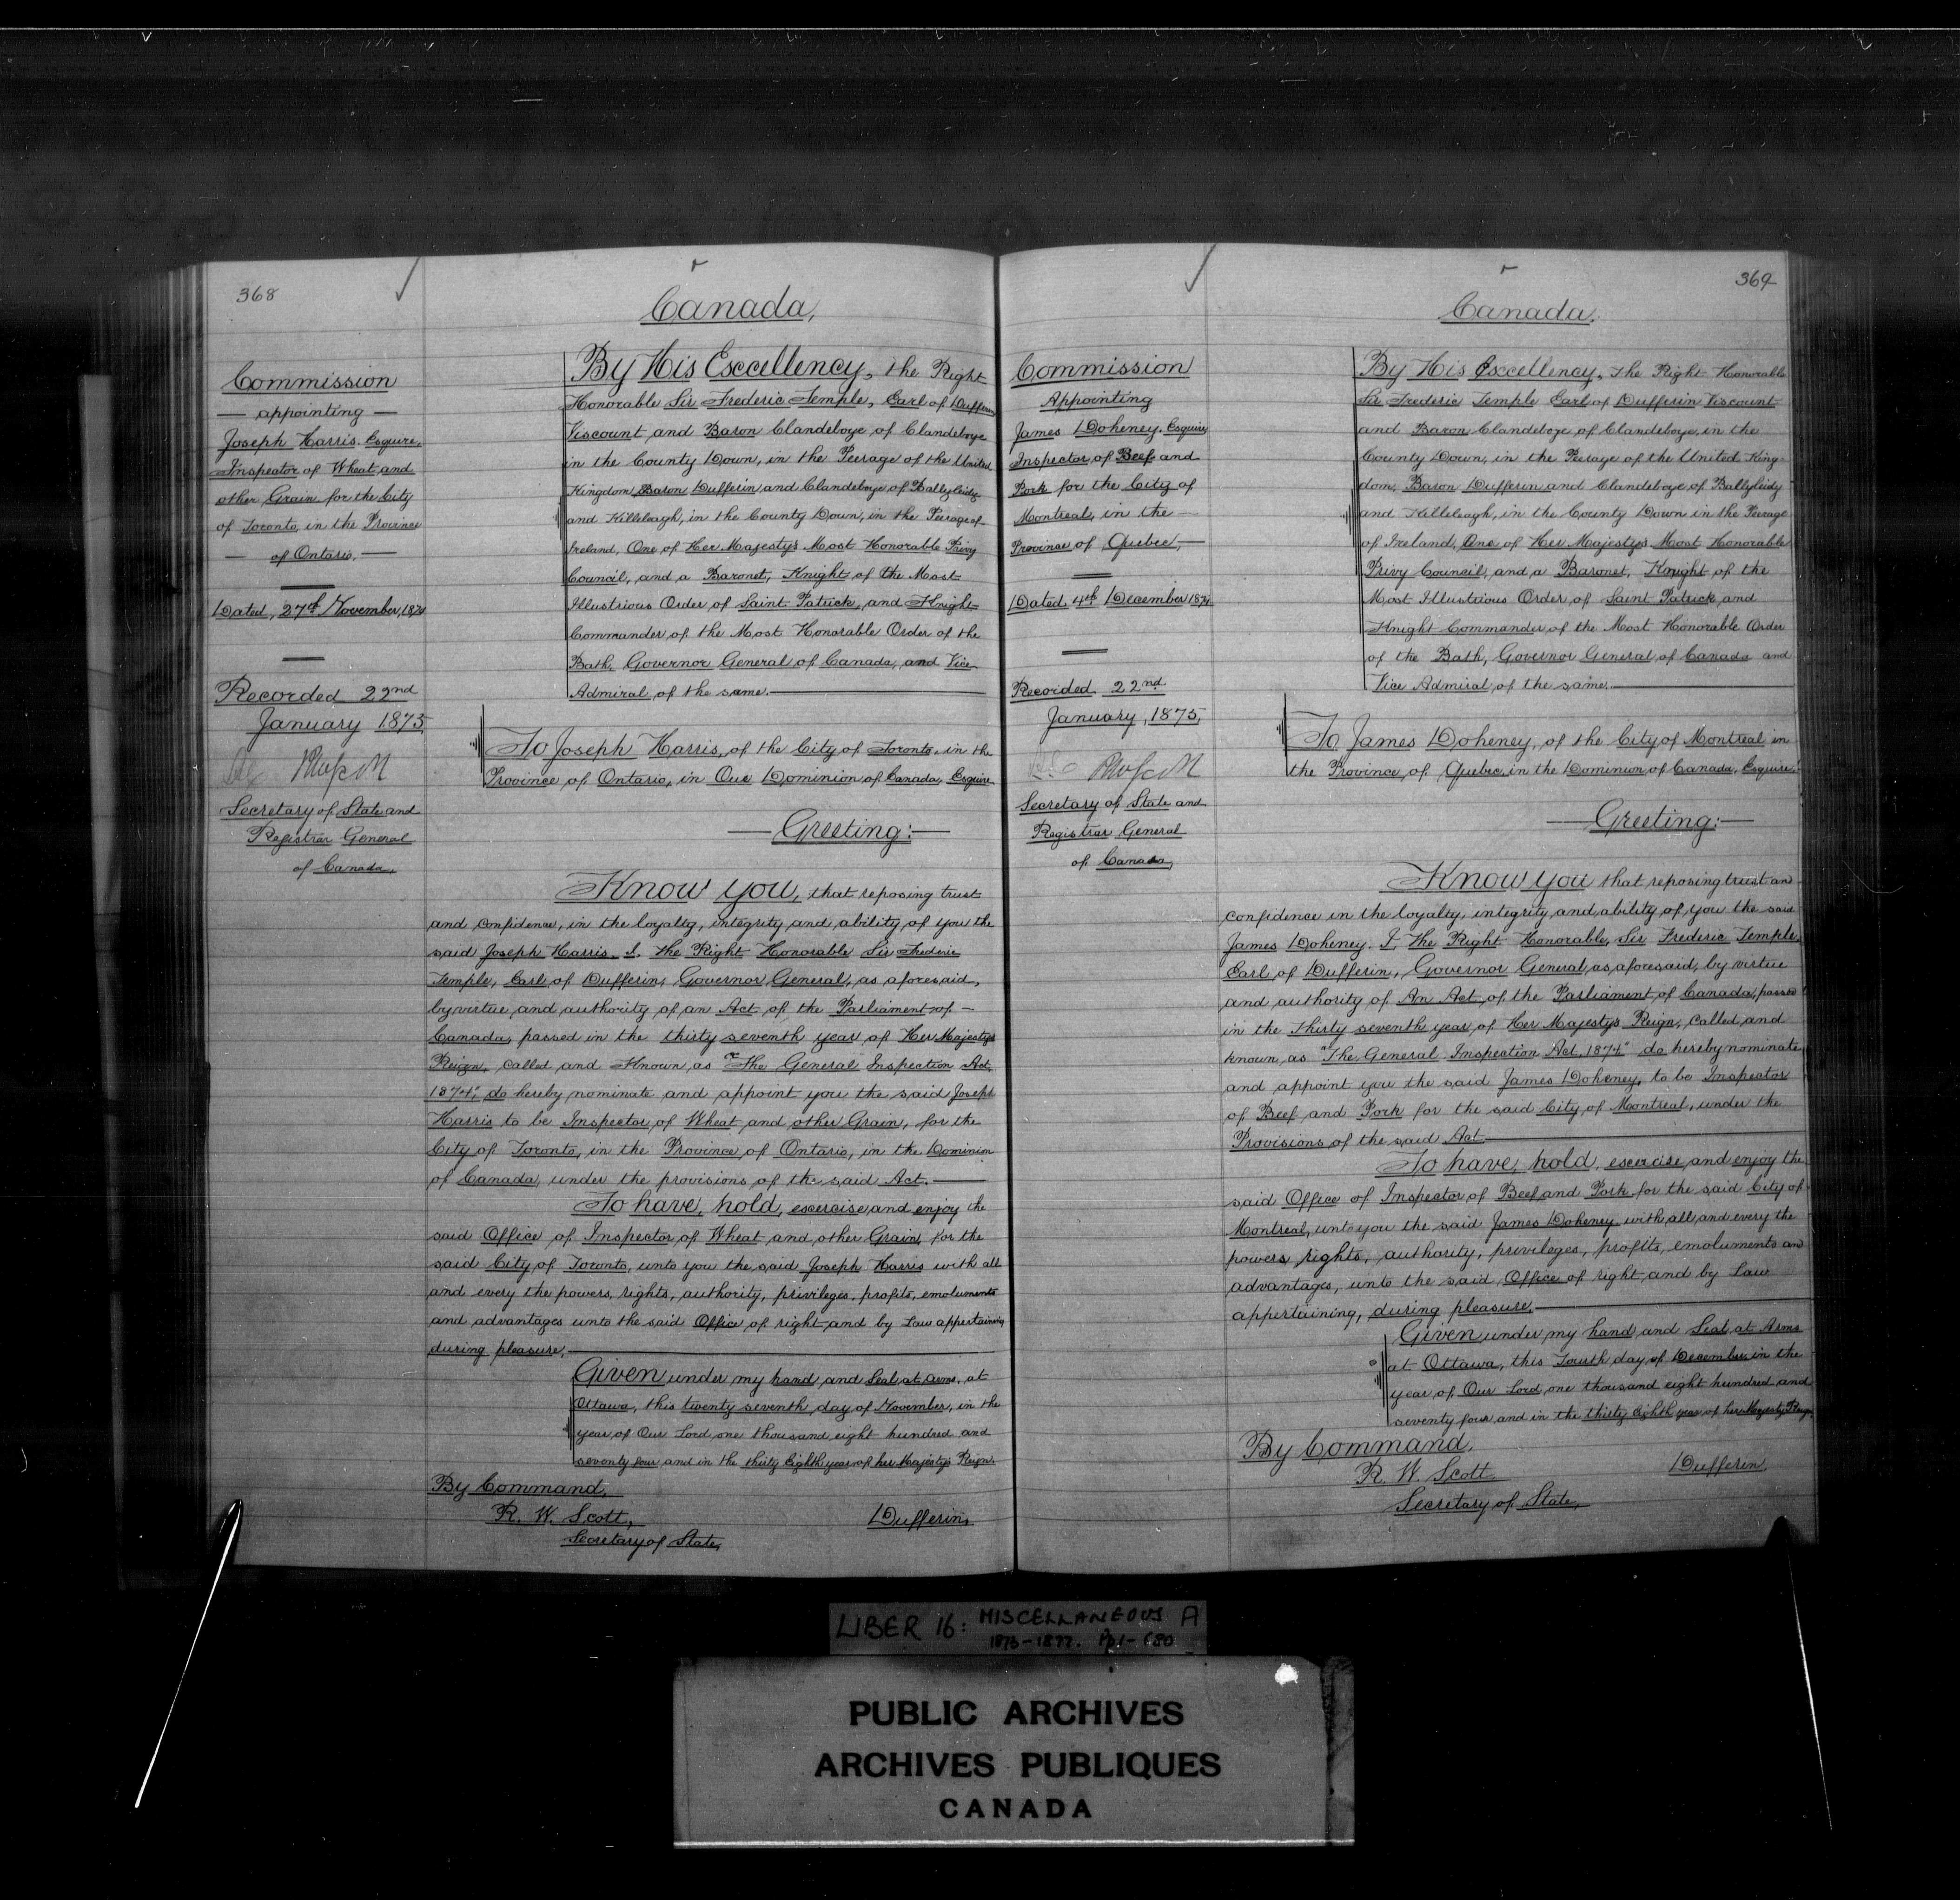 368
Canada,
Commission
— appointing —
Joseph Harris. Esquire,
Inspector of Wheat and
other Grain for the City
of Toronto, in the Province
— of Ontario, —
Dated, 27th November, 1874
Recorded 22nd
January 1875
Secretary of State and
Registrar General
of Canada,
By His Excellency, the Right
Honorable Sir Frederic Temple, Earl of Dufferin
Viscount and Baron Clandeboye of Clandeboye
in the County Down, in the Peerage of the United
Kingdom, Baron Dufferin and Clandeboye of Ballyleidy
and Killeleagh, in the County Down, in the Peerage of
Ireland, One of Her Majesty's Most Honorable Privy
Council, and a Baronet, Knight of the Most
Illustrious Order of Saint Patrick, and Knight
Commander of the Most Honorable Order of the
Bath, Governor General of Canada, and Vice
Admiral of the same.—
To Joseph Harris, of the City of Toronto, in the
Province of Ontario, in Our Dominion of Canada, Esquire
— Greeting:—
Know you, that reposing trust
and confidence, in the loyalty, integrity and ability of you the
said Joseph Harris. I. the Right Honorable Sir Frederic
Temple, Earl of Dufferin, Governor General, as aforesaid,
by virtue and authority of an Act of the Parliament of —
Canada, passed in the thirty seventh year of Her Majesty's
Reign, called and Known, as "The General Inspection Act,
1874", do hereby nominate and appoint you the said Joseph
Harris to be Inspector of Wheat and other Grain, for the
City of Toronto, in the Province of Ontario, in the Dominion
of Canada, under the provisions of the said Act.—
To have, hold, exercise, and enjoy the
said Office of Inspector of Wheat and other Grain, for the
said City of Toronto, unto you the said Joseph Harris with all
and every the powers, rights, authority, privileges, profits, emoluments
and advantages unto the said Office of right and by Law appertaining
during pleasure,—
Given under my hand and Seal at Arms, at
Ottawa, this twenty seventh day of November, in the
year of Our Lord, one thousand eight hundred and
seventy four and in the thirty Eighth year of her Majesty's Reign.
By Command,
R. W. Scott,
Dufferin,
Secretary of State,
369
Canada.
Commission
Appointing
James Doheney, Esquire
Inspector of Beef and
Pork for the City of
Montreal, in the —
Province of Quebec, —
Dated, 4th December 1874
Recorded 22nd
January, 1875,
Secretary of State and
Registrar General
of Canada,
By His Excellency, the Right Honorable
Sir Frederic Temple Earl of Dufferin Viscount
and Baron Clandeboye of Clandeboye, in the
County Down, in the Peerage of the United King-
dom, Baron Dufferin and Clandeboye of Ballyleidy
and Killeleagh, in the County Down in the Peerage
of Ireland, One of Her Majesty's Most Honorable
Privy Council, and a Baronet, Knight of the
Most Illustrious Order of Saint Patrick and
Knight Commander of the Most Honorable Order
of the Bath, Governor General of Canada and
Vice Admiral of the same.—
To, James Doheney, of the City of Montreal in
the Province, of Quebec, in the Dominion of Canada, Esquire.
— Greeting:—
Know you that reposing trust an
confidence in the loyalty, integrity and ability of you the said
James Doheney. I, the Right Honorable, Sir Frederic Temple,
Earl of Dufferin, Governor General, as aforesaid, by virtue
and authority of An Act of the Parliament of Canada, passed
in the thirty seventh year of Her Majesty's Reign, called and
known, as "The General Inspection Act, 1874" do hereby nominate
and appoint you the said James Doheney, to be Inspector
of Beef and Pork for the said City of Montreal, under the
Provisions of the said Act—
To have, hold, exercise and enjoy the
said Office of Inspector of Beef and Pork for the said City of
Montreal, unto you the said James Doheney, with all and every the
powers rights, authority, privileges, profits, emoluments an
advantages, unto the said Office of right and by Law
appertaining, during pleasure,—
Given under my hand and Seal at Arms
at Ottawa, this Fourth day of December in the
year of Our Lord, one thousand eight hundred and
seventy four and in the thirty Eighth year of her Majesty's Reign,
By Command,
R. W. Scott.
Dufferin,
Secretary of State,
LIBER 16: MISCELLANEOUS A
1873-1877. Pp1-680
PUBLIC ARCHIVES
ARCHIVES PUBLIQUES
CANADA